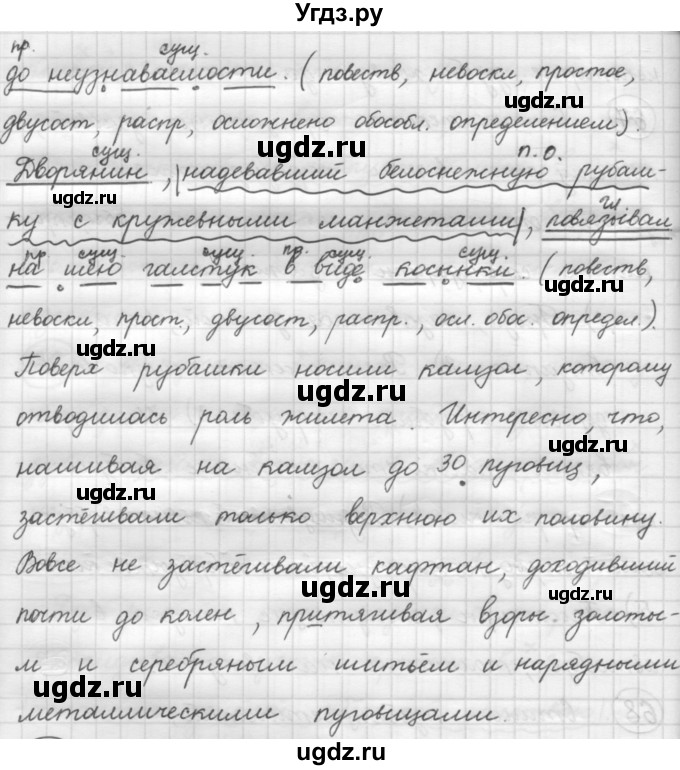 Угдз.ру
пр. сущ.
до неузнаваемости. (повеств, невоскл, простое,
двусост, распр, осложнено обособл. определением).
сущ. п.о.
Дворянин, |надевавший белоснежную рубаш-
гл.
ку с кружевными манжетами|, повязывал
пр. сущ. сущ. пр. сущ. сущ.
на шею галстук в виде косынки. (повеств,
невоскл, прост., двусост, распр., осл. обос. определ.).
Поверх рубашки носили камзол, которому
отводилась роль жилета. Интересно, что,
нашивая на камзол до 30 пуговиц,
застёгивали только верхнюю их половину.
Вовсе не застёгивали кафтан, доходивший
почти до колен, притягивая взоры золоты-
м и серебряным шитьём и нарядными
металлическими пуговицами.
ugdz.ru
ugdz.ru
ugdz.ru
ugdz.ru
ugdz.ru
ugdz.ru
ugdz.ru
ugdz.ru
ugdz.ru
ugdz.ru
ugdz.ru
ugdz.ru
ugdz.ru
ugdz.ru